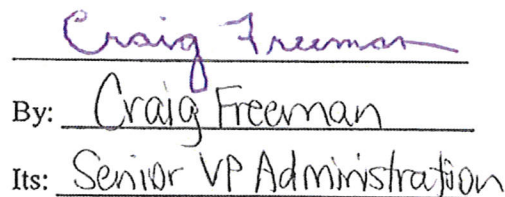 Craig Freeman
By: Craig Freeman
Its: Senior VP Administration